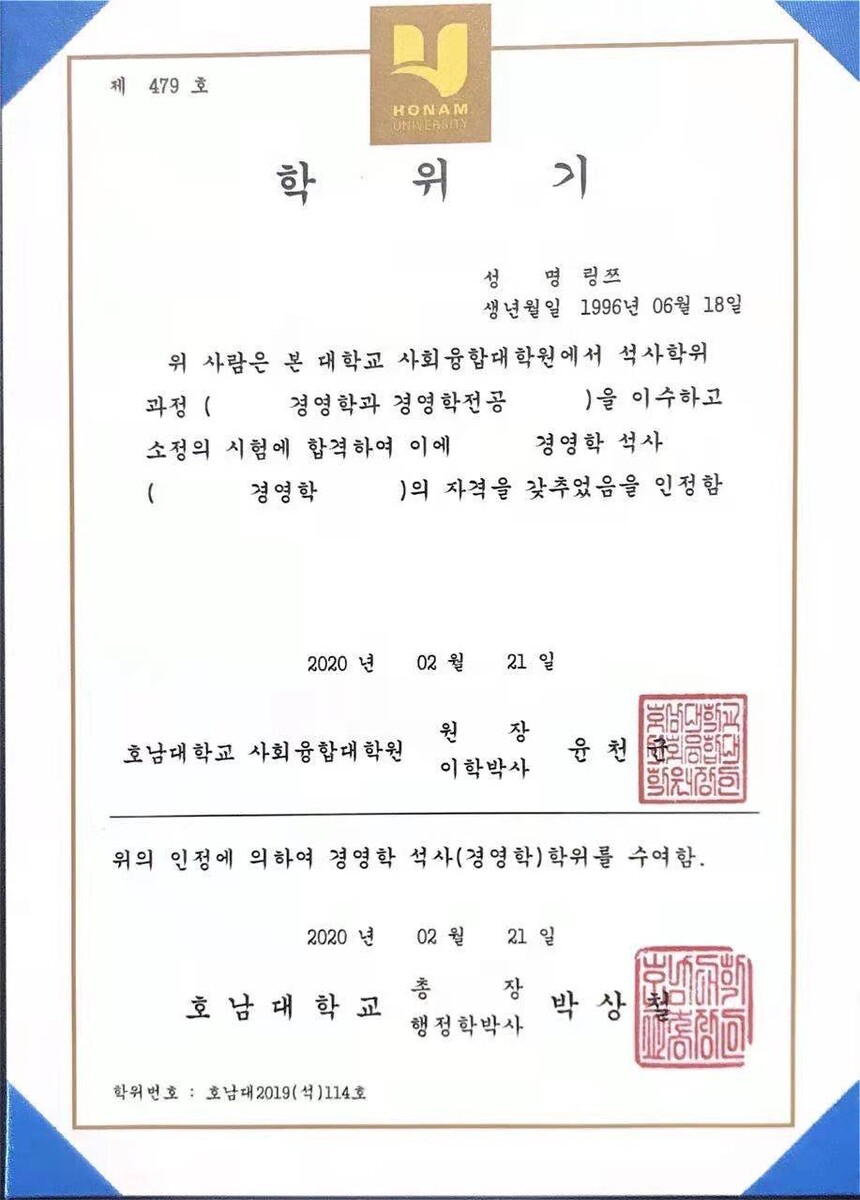 제 479 호
HONAM
UNIVERSITY
학 위 기
성 명 링쯔
생년월일 1996년 06월 18일
위 사람은 본 대학교 사회융합대학원에서 석사학위
과정 ( 경영학과 경영학전공 )을 이수하고
소정의 시험에 합격하여 이에 경영학 석사
( 경영학 )의 자격을 갖추었음을 인정함
2020 년 02 월 21 일
호남대학교 사회융합대학원 원 장 이학박사 윤 천 균
위의 인정에 의하여 경영학 석사(경영학)학위를 수여함.
2020 년 02 월 21 일
호 남 대 학 교 총 장 행정학박사 박 상 철
학위번호 : 호남대2019(석)114호